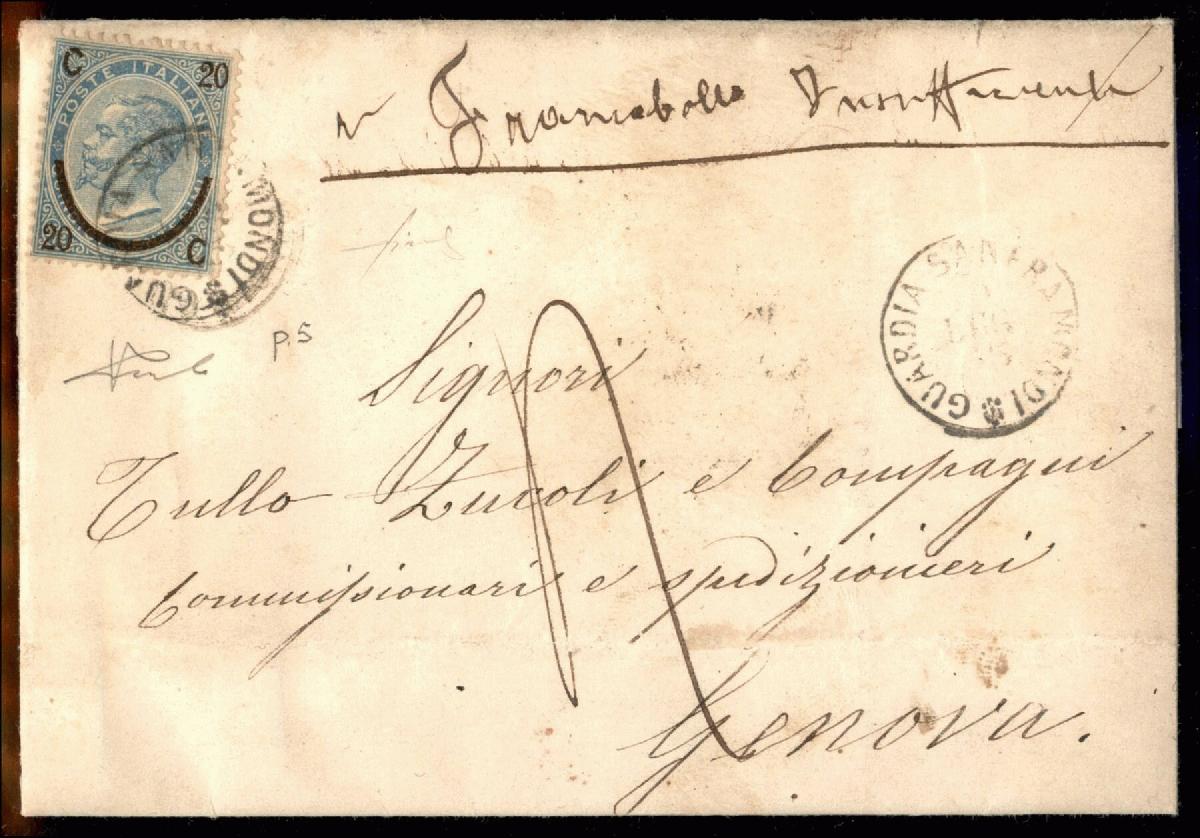 C 20
POSTE ITALIANE
20 C
MONDI GU
Francobollo Insufficiente
p.5
GUARDIA SANFRAMONDI
LUG
Signori
Tullo Zuvoli e Compagni
Commissionari e spedizionieri
Genova.